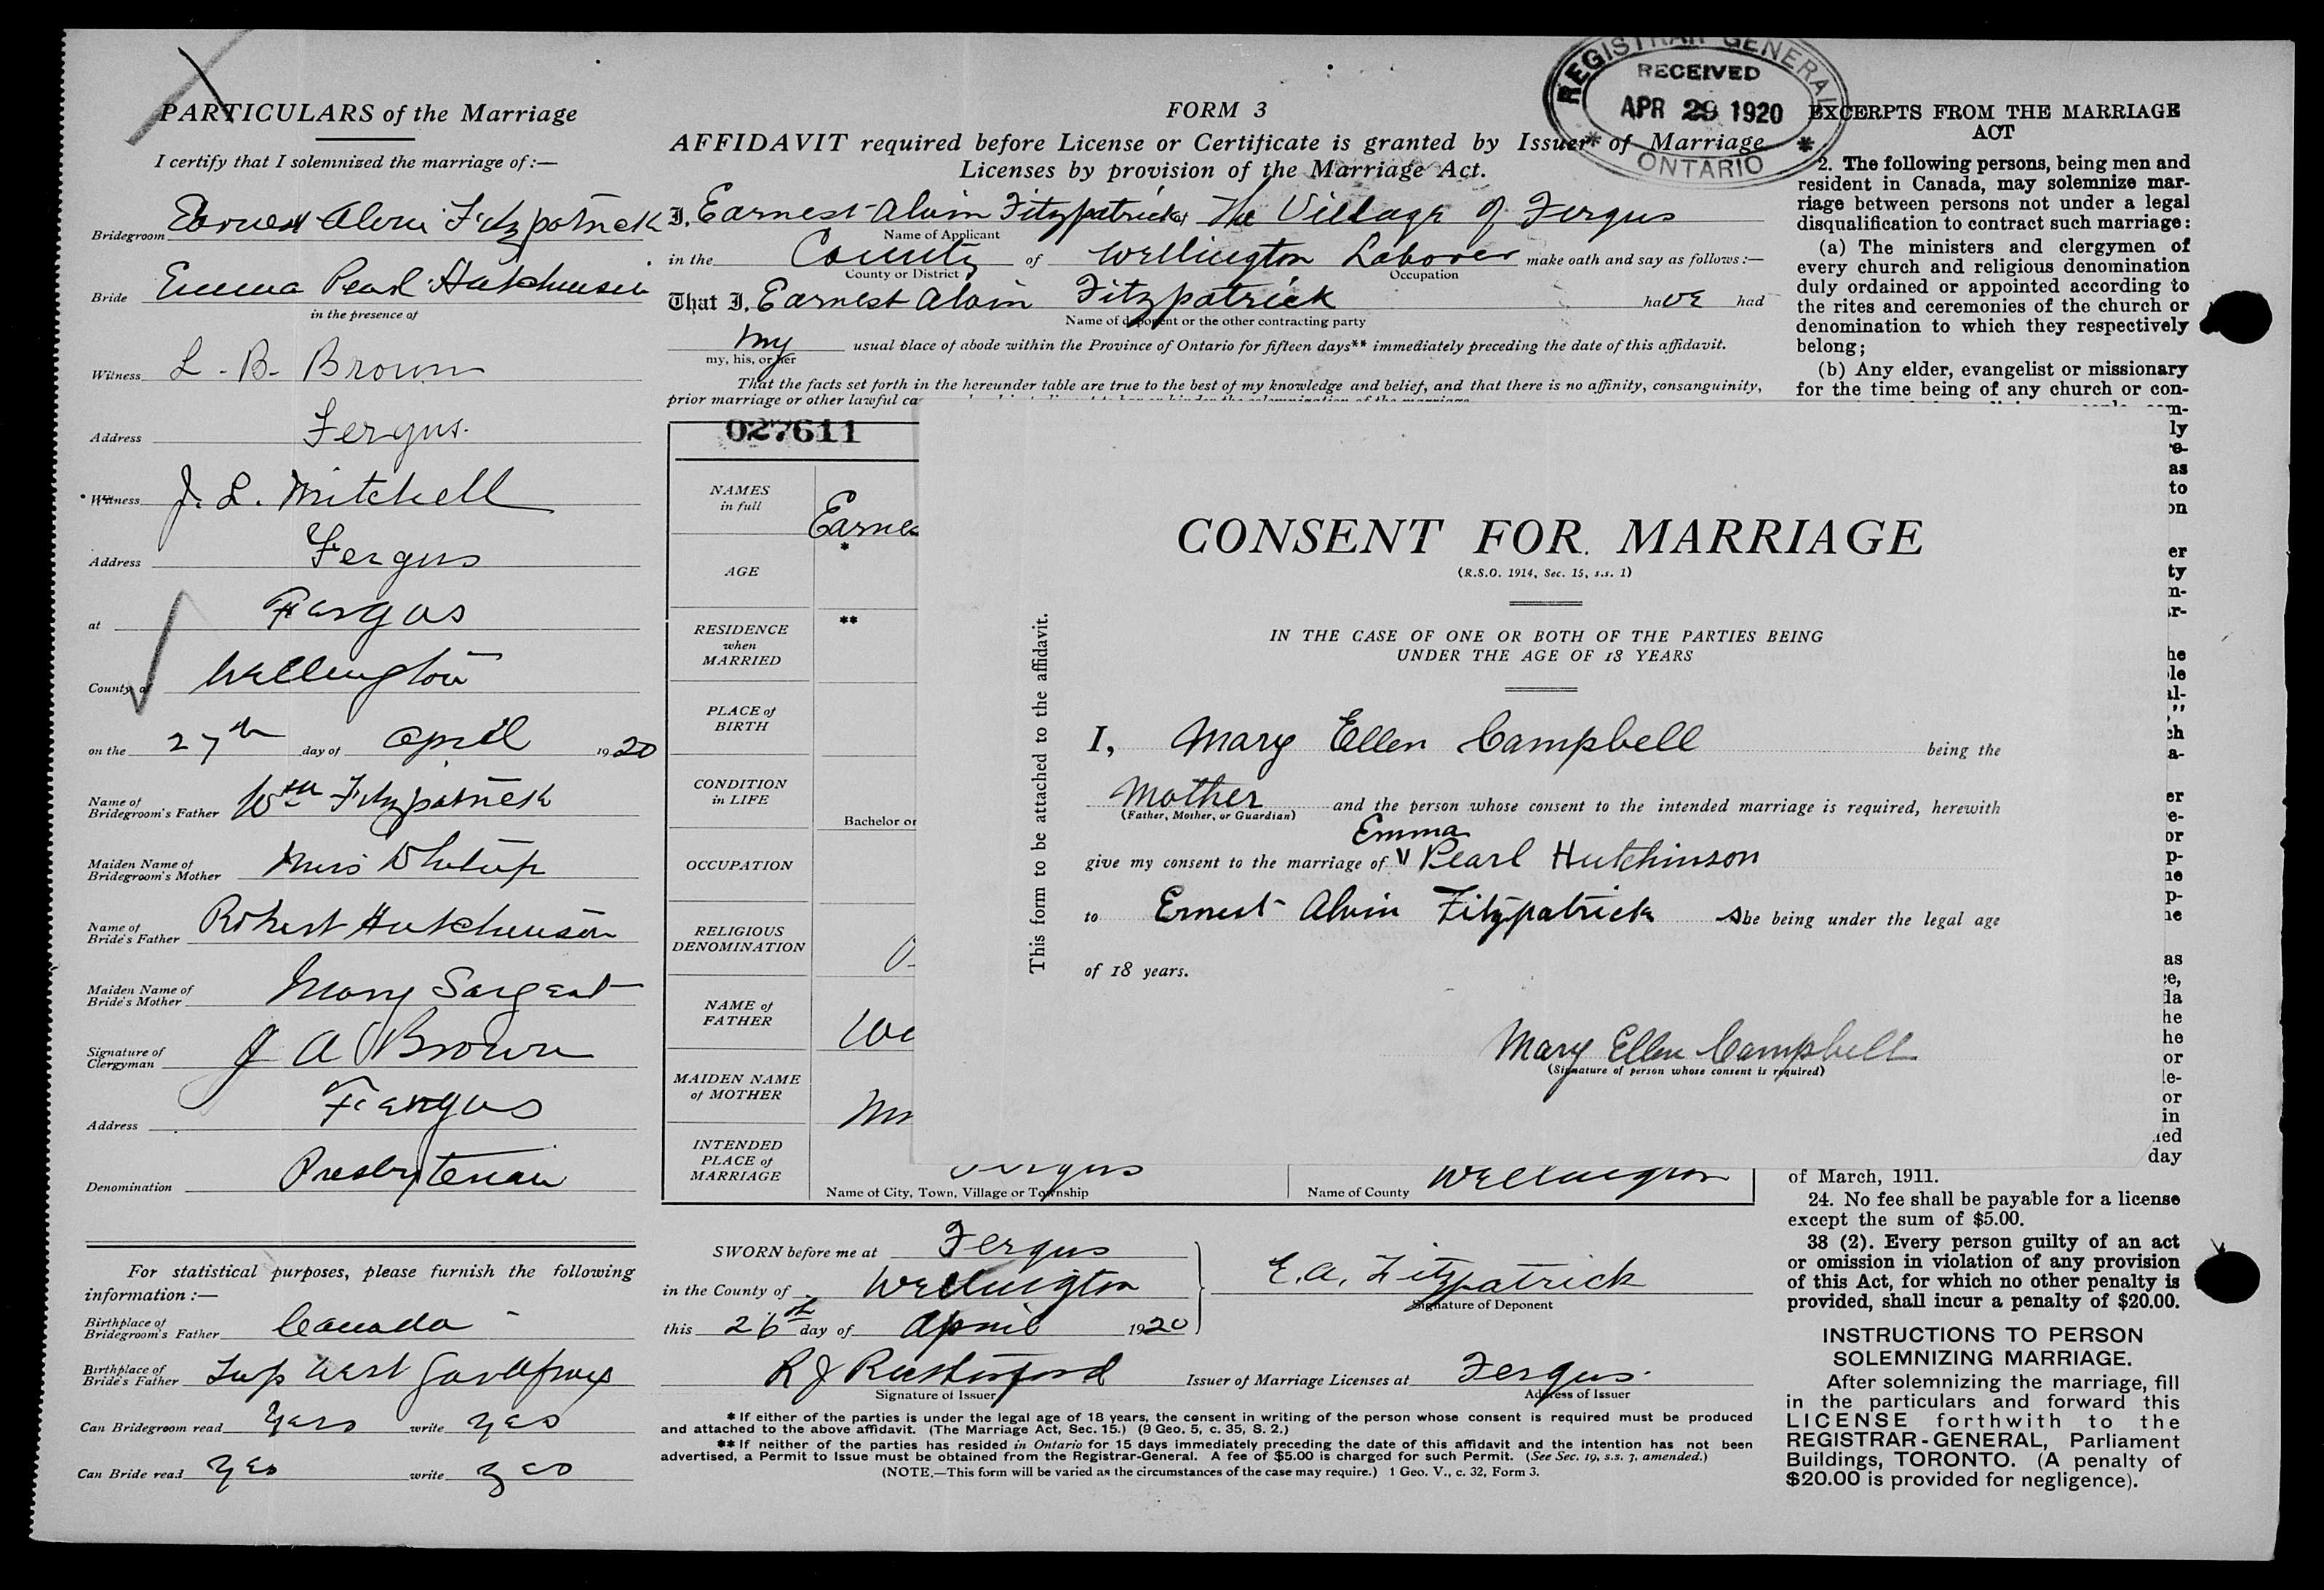 PARTICULARS of the Marriage
I certify that I solemnized the marriage of:—
Bridegroom Earnest Alvin Fitzpatrick
Bride Emma Pearl Hutchinson
in the presence of
Witness L. B. Brown
Address Fergus.
Witness J. L. Mitchell
Address Fergus
at Fergus
County of Wellington
on the 27th day of April 1920
Name of Bridegroom's Father Wm Fitzpatrick
Maiden Name of Bridegroom's Mother Miss
Name of Bride's Father Robert Hutchinson
Maiden Name of Bride's Mother Mary Sargent
Signature of Clergyman J A Brown
Address Fergus
Denomination Presbyterian
For statistical purposes, please furnish the following
information:—
Birthplace of Bridegroom's Father Canada
Birthplace of Bride's Father Twp West
Can Bridegroom read Yes write Yes
Can Bride read Yes write Yes
FORM 3
AFFIDAVIT required before License or Certificate is granted by Issuer of Marriage
Licenses by provision of the Marriage Act.
I, Earnest Alvin Fitzpatrick of The Village of Fergus
Name of Applicant
in the County of Wellington Laborer make oath and say as follows:—
County or District Occupation
That I, Earnest Alvin Fitzpatrick have had
Name of deponent or the other contracting party
my usual place of abode within the Province of Ontario for fifteen days** immediately preceding the date of this affidavit.
my, his, or her
That the facts set forth in the hereunder table are true to the best of my knowledge and belief, and that there is no affinity, consanguinity,
prior marriage or other lawful ca
027611
NAMES
in full
Earnes
*
AGE
**
RESIDENCE
when
MARRIED
PLACE of
BIRTH
CONDITION
in LIFE
Bachelor or
OCCUPATION
RELIGIOUS
DENOMINATION
NAME of
FATHER
MAIDEN NAME
of MOTHER
INTENDED
PLACE of
MARRIAGE
Fergus
Name of City, Town, Village or Township
Name of County Wellington
CONSENT FOR MARRIAGE
(R.S.O. 1914, Sec. 15, s.s. 1)
IN THE CASE OF ONE OR BOTH OF THE PARTIES BEING
UNDER THE AGE OF 18 YEARS
This form to be attached to the affidavit.
I, Mary Ellen Campbell being the
Mother and the person whose consent to the intended marriage is required, herewith
(Father, Mother, or Guardian)
Emma
give my consent to the marriage of V Pearl Hutchinson
to Ernest Alvin Fitzpatrick she being under the legal age
of 18 years.
Mary Ellen Campbell
(Signature of person whose consent is required)
SWORN before me at Fergus
in the County of Wellington
this 26th day of April 1920
E. A. Fitzpatrick
Signature of Deponent
R J Rutherford Issuer of Marriage Licenses at Fergus.
Signature of Issuer Address of Issuer
* If either of the parties is under the legal age of 18 years, the consent in writing of the person whose consent is required must be produced
and attached to the above affidavit. (The Marriage Act, Sec. 15.) (9 Geo. 5, c. 35, S. 2.)
** If neither of the parties has resided in Ontario for 15 days immediately preceding the date of this affidavit and the intention has not been
advertised, a Permit to Issue must be obtained from the Registrar-General. A fee of $5.00 is charged for such Permit. (See Sec. 19, s.s. 7, amended.)
(NOTE.—This form will be varied as the circumstances of the case may require.) 1 Geo. V., c. 32, Form 3.
REGISTRAR GENERAL
RECEIVED
APR 29 1920
* ONTARIO *
EXCERPTS FROM THE MARRIAGE
ACT
2. The following persons, being men and
resident in Canada, may solemnize mar-
riage between persons not under a legal
disqualification to contract such marriage:
(a) The ministers and clergymen of
every church and religious denomination
duly ordained or appointed according to
the rites and ceremonies of the church or
denomination to which they respectively
belong;
(b) Any elder, evangelist or missionary
for the time being of any church or con-
of March, 1911.
24. No fee shall be payable for a license
except the sum of $5.00.
38 (2). Every person guilty of an act
or omission in violation of any provision
of this Act, for which no other penalty is
provided, shall incur a penalty of $20.00.
INSTRUCTIONS TO PERSON
SOLEMNIZING MARRIAGE.
After solemnizing the marriage, fill
in the particulars and forward this
LICENSE forthwith to the
REGISTRAR-GENERAL, Parliament
Buildings, TORONTO. (A penalty of
$20.00 is provided for negligence).